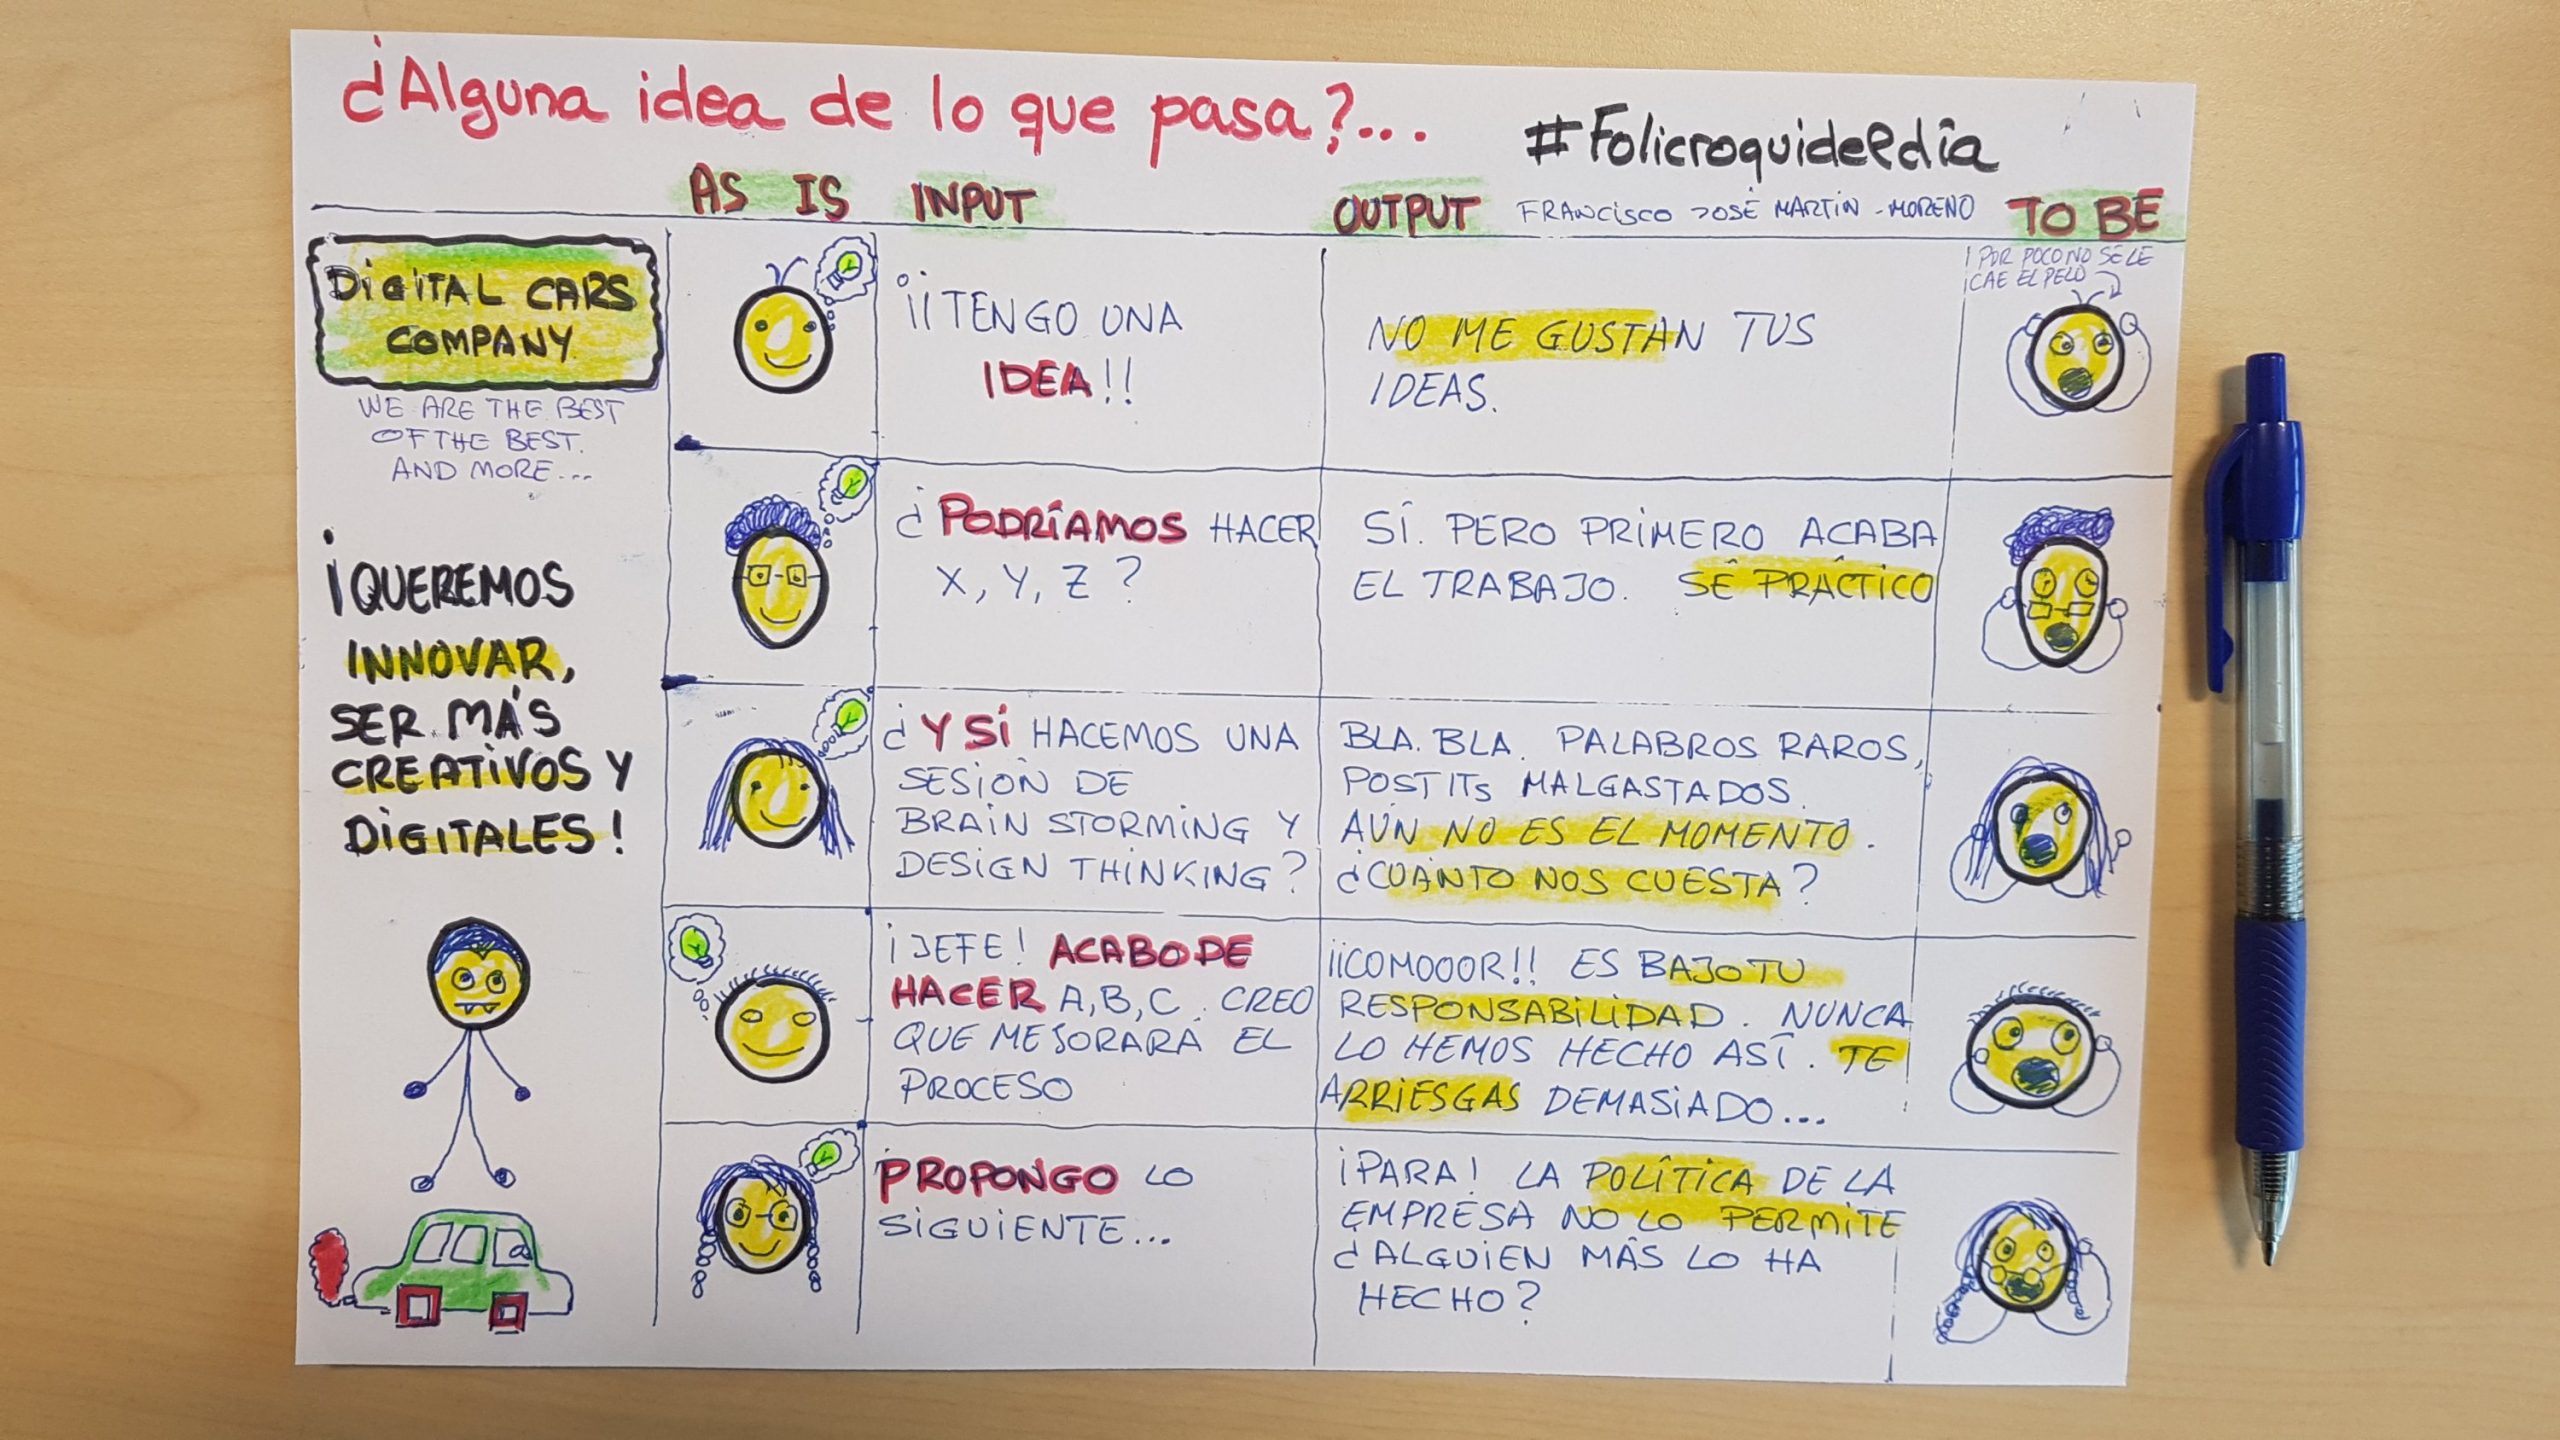 ¿Alguna idea de lo que pasa?...
#Folicroquideldía
FRANCISCO JOSÉ MARTÍN-MORENO
AS IS
INPUT
OUTPUT
TO BE
DIGITAL CARS
COMPANY
WE ARE THE BEST
OF THE BEST.
AND MORE...
¡QUEREMOS
INNOVAR,
SER MÁS
CREATIVOS Y
DIGITALES!
¡¡TENGO UNA
IDEA!!
NO ME GUSTAN TUS
IDEAS.
¡POR POCO NO SE LE
CAE EL PELO
¿PODRÍAMOS HACER
X, Y, Z?
SÍ. PERO PRIMERO ACABA
EL TRABAJO. SÉ PRÁCTICO
¿Y SI HACEMOS UNA
SESIÓN DE
BRAIN STORMING Y
DESIGN THINKING?
BLA. BLA. PALABROS RAROS,
POSTITs MALGASTADOS.
AÚN NO ES EL MOMENTO.
¿CUÁNTO NOS CUESTA?
¡JEFE! ACABO DE
HACER A, B, C. CREO
QUE MEJORARÁ EL
PROCESO
¡¡COMOOOR!! ES BAJO TU
RESPONSABILIDAD. NUNCA
LO HEMOS HECHO ASÍ. TE
ARRIESGAS DEMASIADO...
PROPONGO LO
SIGUIENTE...
¡PARA! LA POLÍTICA DE LA
EMPRESA NO LO PERMITE
¿ALGUIEN MÁS LO HA
HECHO?